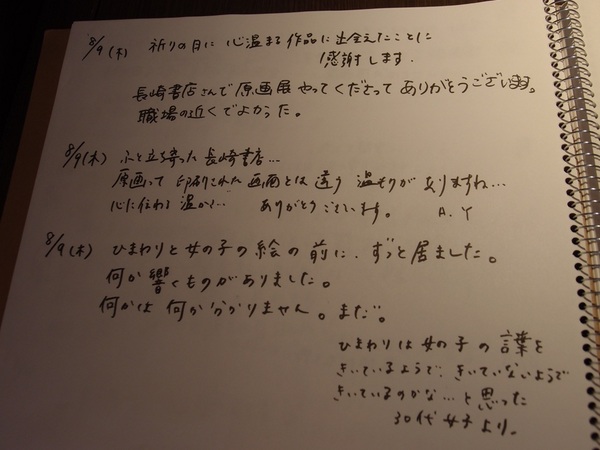 8/9(木) 祈りの日に 心温まる作品に出会えたことに
感謝します.
長崎書店さんで原画展やってくださってありがとうございます。
職場の近くでよかった。
8/9(木) ふと立ち寄った長崎書店…
原画って印刷された画面とは違う温もりがありますね…
心に伝わる温かく… ありがとうございます。 A.Y
8/9(木) ひまわりと女の子の絵の前に、ずっと居ました。
何か響くものがありました。
何かは何か分かりません。まだ。
ひまわりは女の子の言葉を
きいているようで、きいていないようで
きいているのかな…と思った
30代女子より。